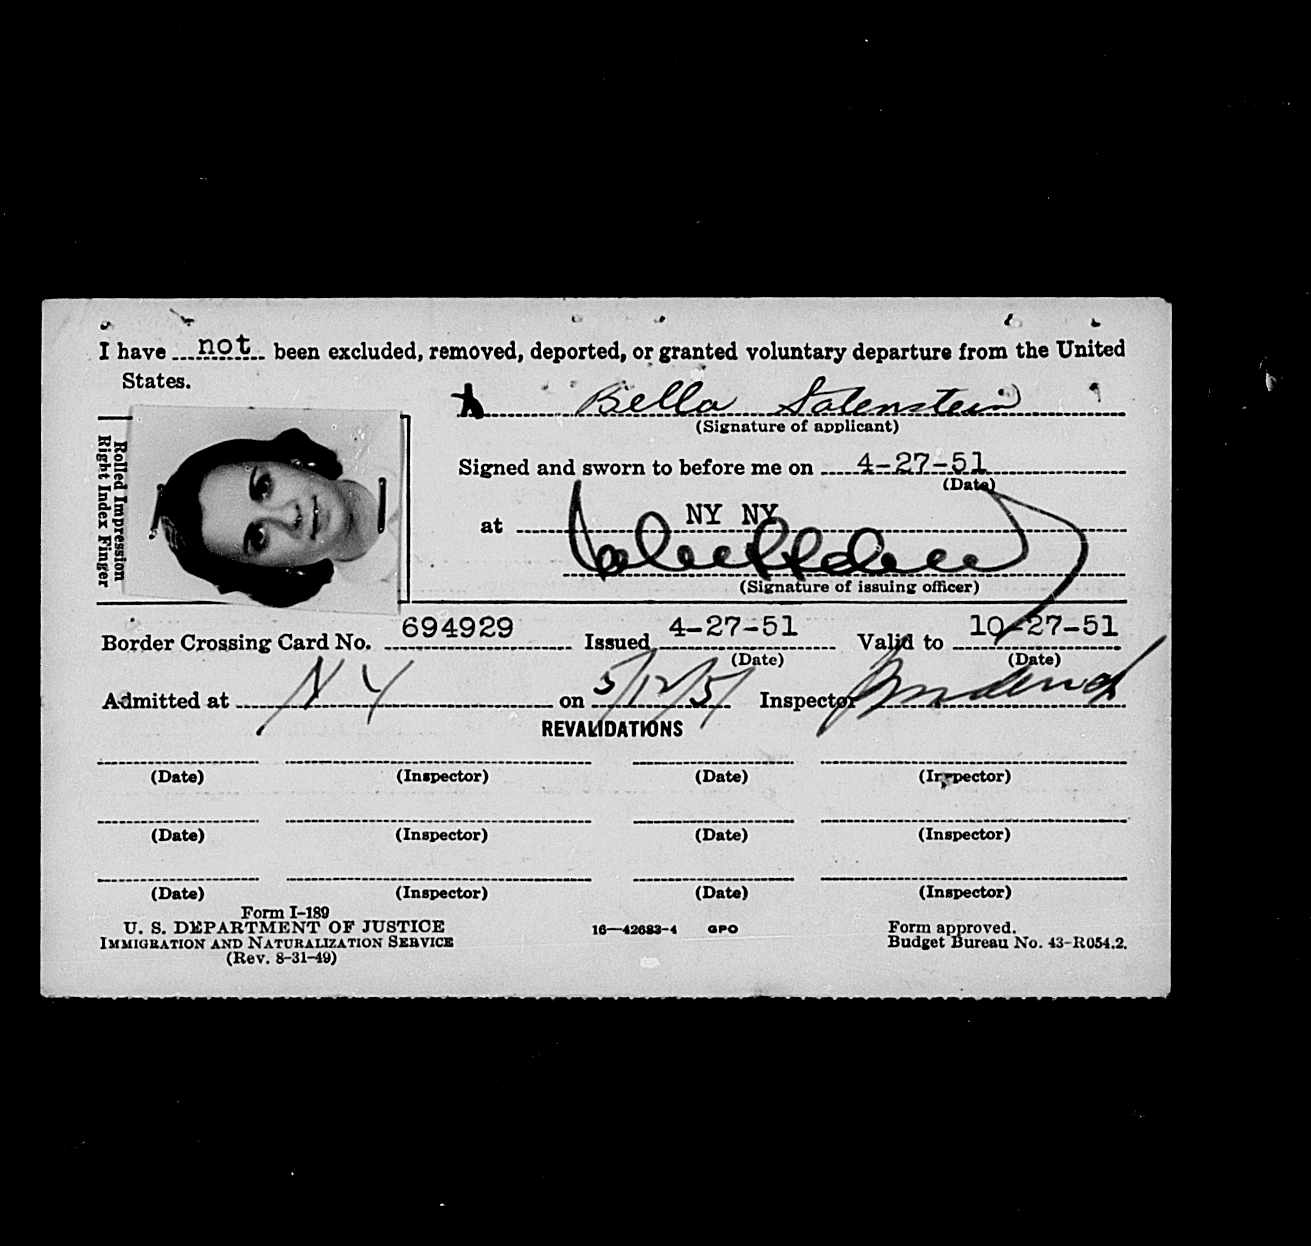 I have not been excluded, removed, deported, or granted voluntary departure from the United
States.
Bella
(Signature of applicant)
Rolled Impression
Right Index Finger
Signed and sworn to before me on 4-27-51
(Date)
at NY NY
(Signature of issuing officer)
Border Crossing Card No. 694929 Issued 4-27-51 Valid to 10-27-51
(Date) (Date)
Admitted at NY on 5/12/51 Inspector
REVALIDATIONS
(Date) (Inspector) (Date) (Inspector)
(Date) (Inspector) (Date) (Inspector)
(Date) (Inspector) (Date) (Inspector)
Form I-189
U. S. DEPARTMENT OF JUSTICE 16—42683-4 GPO Form approved.
IMMIGRATION AND NATURALIZATION SERVICE Budget Bureau No. 43-R054.2.
(Rev. 8-31-49)